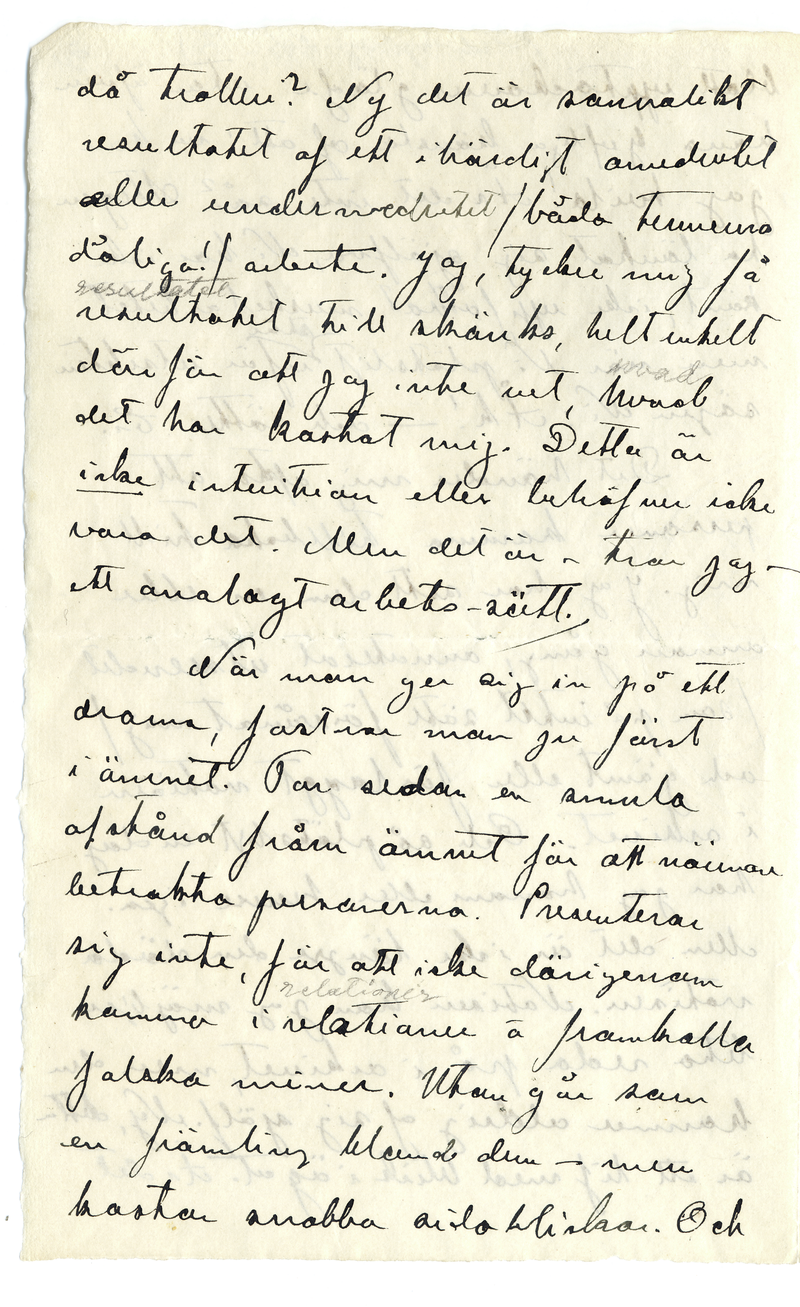 då trolleri? Nej det är sannolikt
resultatet af ett ihärdigt omedvetet
eller undermedvetet / båda termerna
dåliga! / arbete. Jag, tycker mig få
resultatet
resultatet till skänks, helt enkelt
hvad
därför att jag inte vet, hvad
det har kostat mig. Detta är
icke intuition eller behöfver icke
vara det. Men det är – tror jag –
ett analogt arbets-sätt.
När man ger sig in på ett
drama, fastnar man ju först
i ämnet. Tar sedan en smula
afstånd från ämnet för att närmare
betrakta personerna. Presenterar
sig inte, för att icke därigenom
relationer
komma i relationer o framkalla
falska miner. Utan går som
en främling bland dem – men
kastar snabba sidoblickar. Och